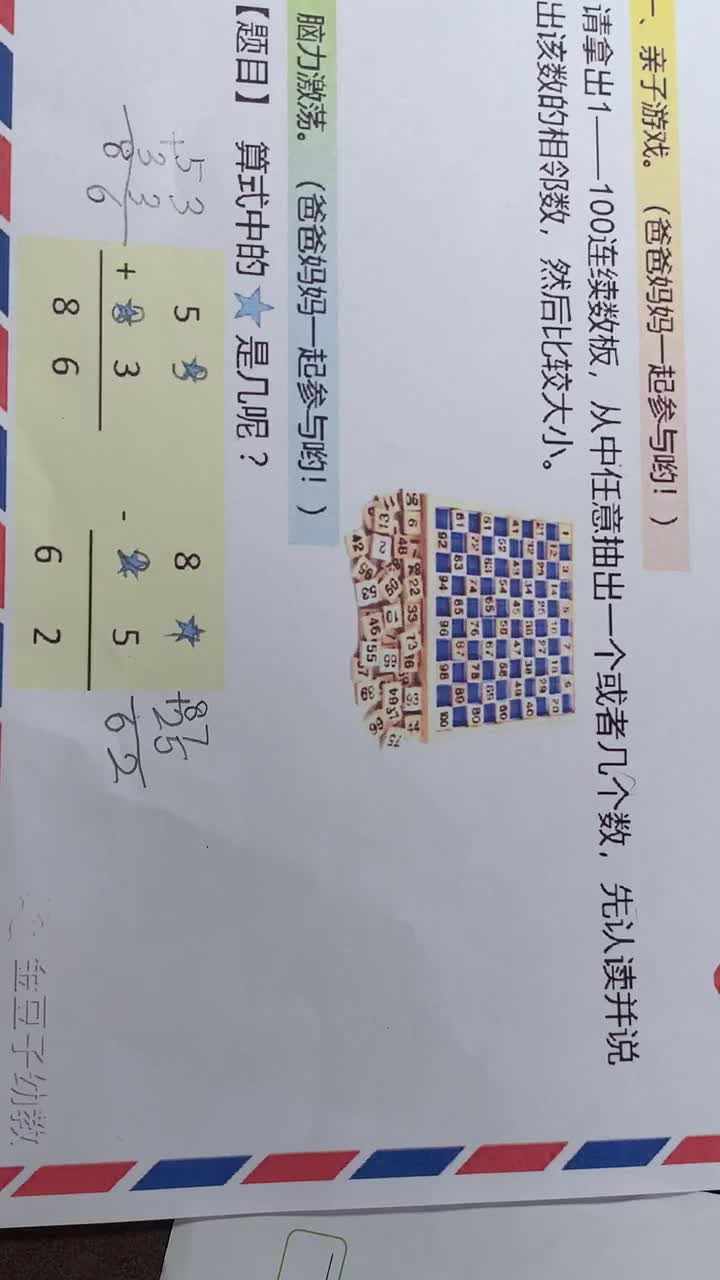 一、亲子游戏。（爸爸妈妈一起参与哟！）
请拿出1——100连续数板，从中任意抽出一个或者几个数，先认读并说
出该数的相邻数，然后比较大小。
脑力激荡。（爸爸妈妈一起参与哟！）
【题目】 算式中的 是几呢？
5 3
+ 3 3
8 6
5 3
+ 3 3
8 6
8
- 2 5
6 2
87
+25
62
金豆子幼教